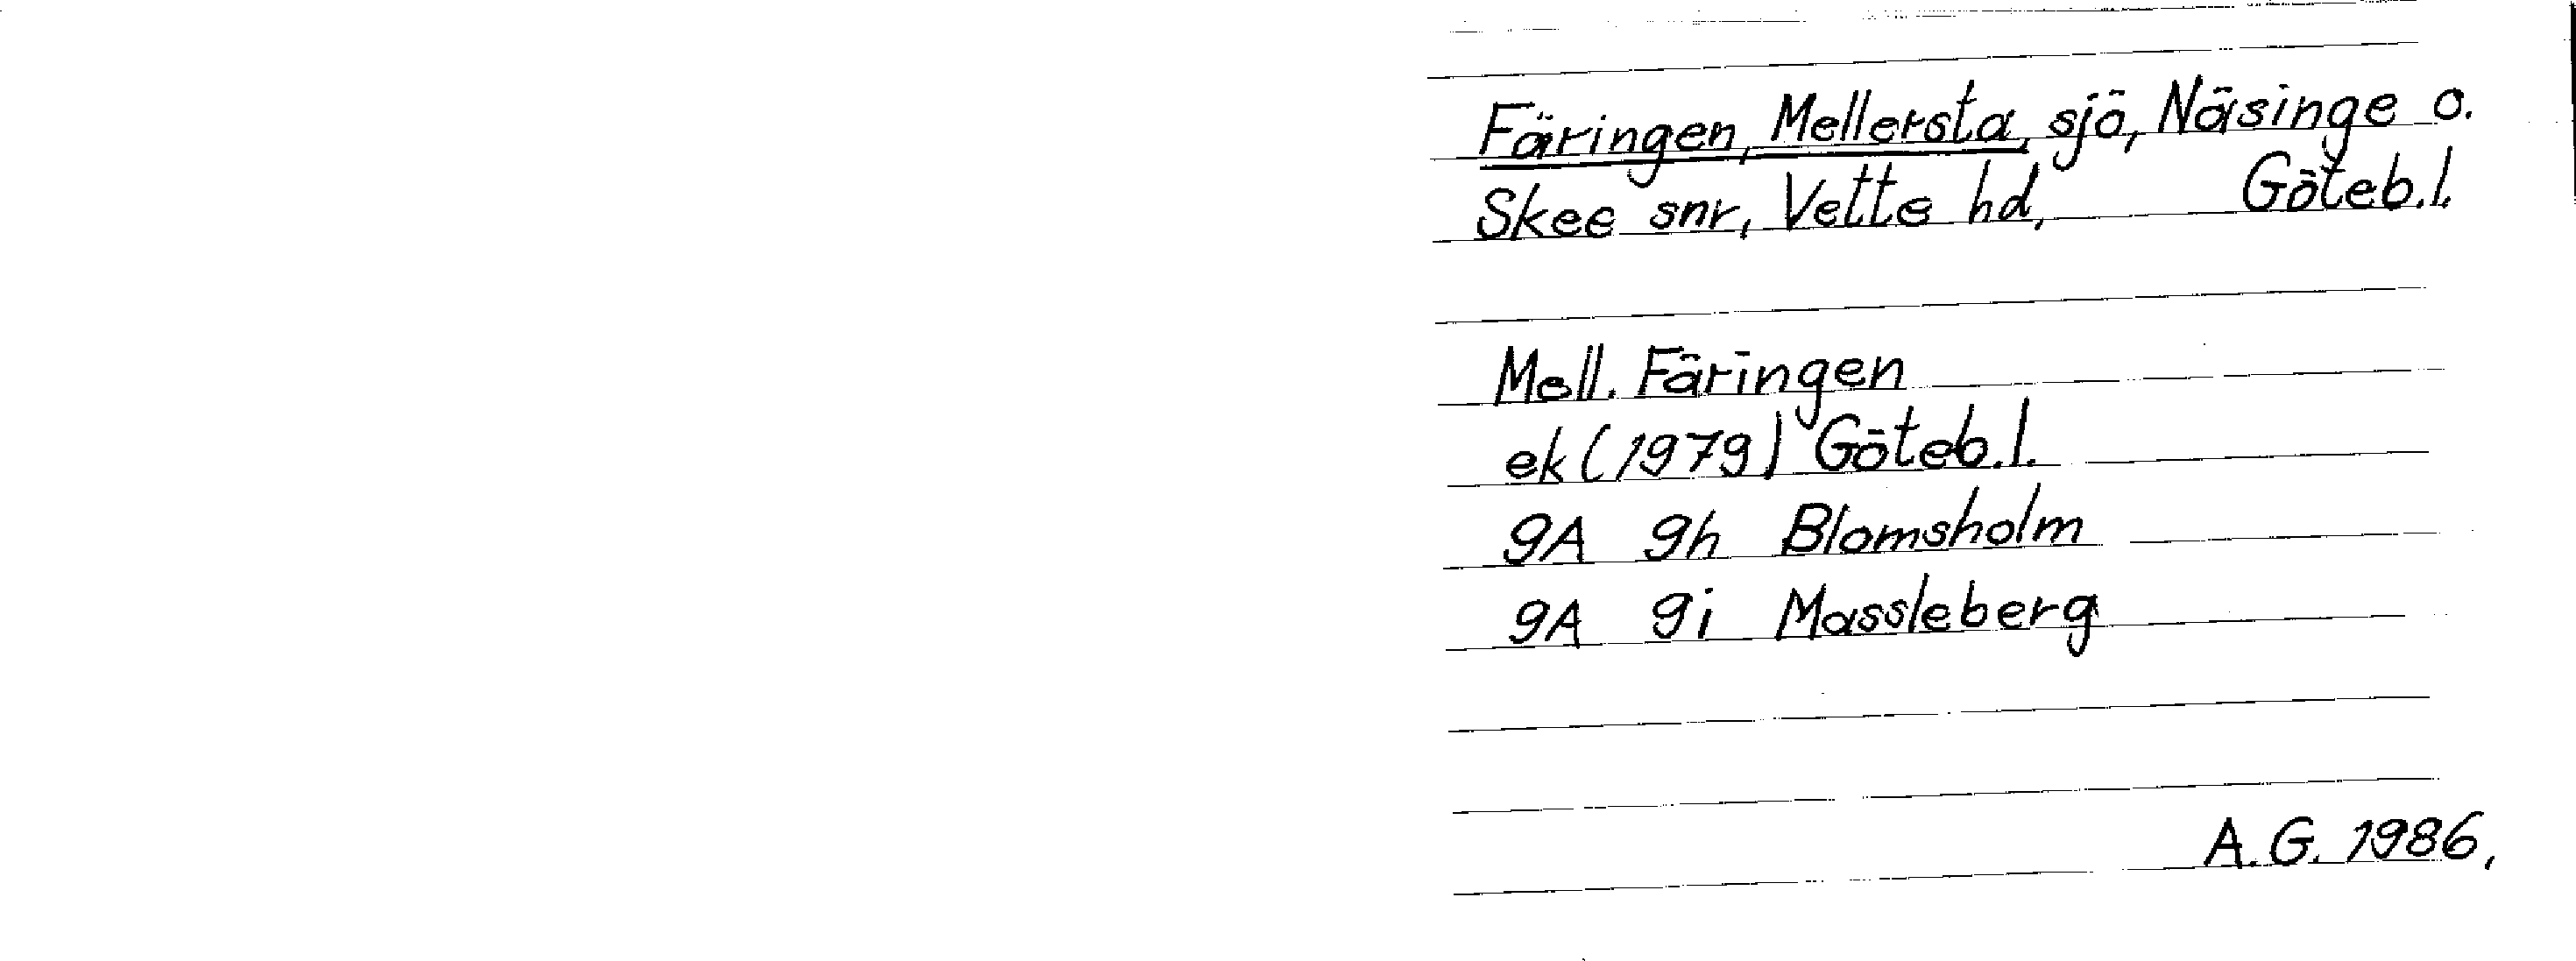 Färingen, Mellersta, sjö, Näsinge o.
Skee snr, Vette hd, Göteb.l.
Mell. Färingen
ek (1979) Göteb.l.
9A 9h Blomsholm
9A 9i Massleberg
A.G. 1986.